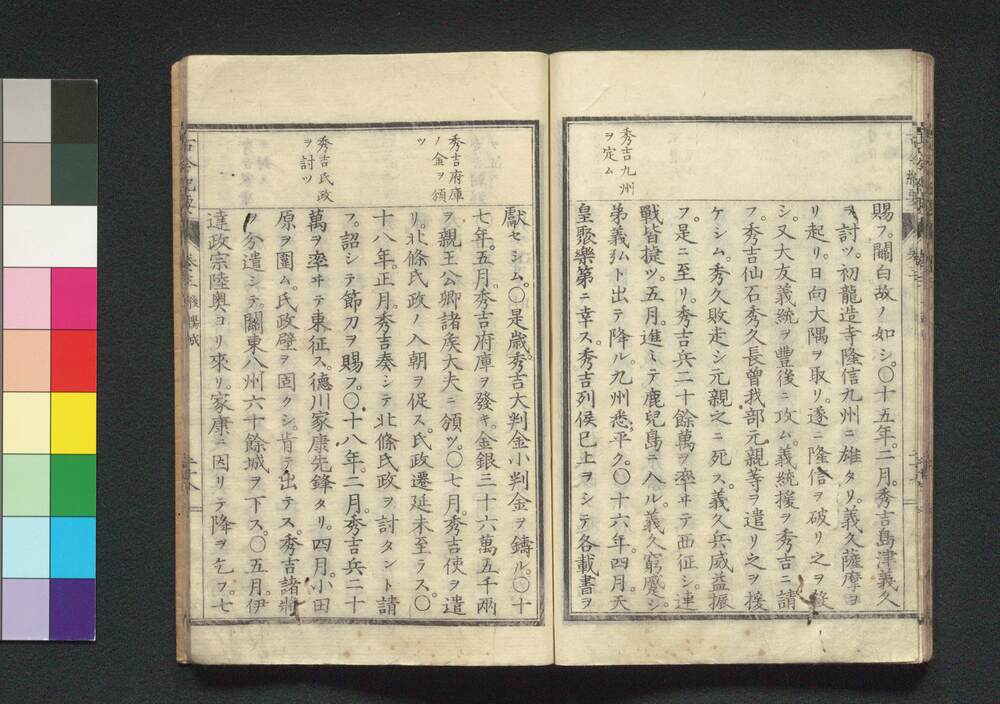 秀吉九州
ヲ定ム
賜フ。關白故ノ如シ。〇十五年。二月。秀吉島津義久
ヲ討ツ。初龍造寺隆信九州ニ雄タリ。義久薩摩ヨ
リ起リ。日向大隅ヲ取リ。遂ニ隆信ヲ破リ之ヲ
シ。又大友義統ヲ豐後ニ攻ム。義統援ヲ秀吉ニ請
フ。秀吉仙石秀久長曾我部元親等ヲ遣リ之ヲ援
ケシム。秀久敗走シ元親之ニ死ス。義久兵威益振
フ。是ニ至リ。秀吉兵二十餘萬ヲ率ヰテ西征シ。連
戰皆捷ツ。五月。進ミテ鹿兒島ニ入ル。義久窮蹙シ。
弟義弘ト出テ降ル。九州悉ク平ク。〇十六年。四月。天
皇聚樂第ニ幸ス。秀吉列侯已上ヲシテ各載書ヲ
秀吉府庫
ノ金ヲ頒
ツ
秀吉氏政
ヲ討ツ
獻セシム。〇是歳。秀吉大判金小判金ヲ鑄ル。〇十
七年。五月。秀吉府庫ヲ發キ。金銀三十六萬五千兩
ヲ親王公卿諸矦大夫ニ頒ツ。〇七月。秀吉使ヲ遣
リ。北條氏政ノ入朝ヲ促ス。氏政遷延未至ラス。〇
十八年。正月。秀吉奏シテ北條氏政ヲ討タント請
フ。詔シテ節刀ヲ賜フ。〇十八年。二月。秀吉兵二十
萬ヲ率ヰテ東征ス。德川家康先鋒タリ。四月。小田
原ヲ圍ム。氏政壁ヲ固クシ。肯テ出テス。秀吉諸將
ヲ分遣シテ。關東八州六十餘城ヲ下ス。〇五月。伊
達政宗陸奧ヨリ來リ。家康ニ因リテ降ヲ乞フ。七